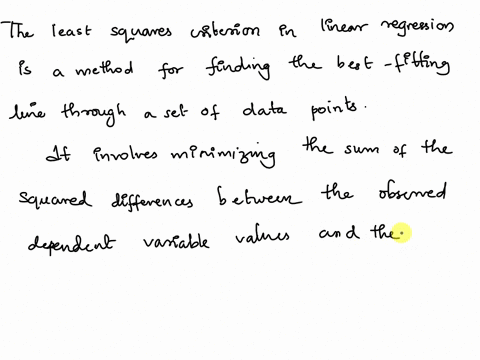 The least squares criterion in linear regression
is a method for finding the best-fitting
line through a set of data points.
It involves minimizing the sum of the
squared differences between the observed
dependent variable values and the